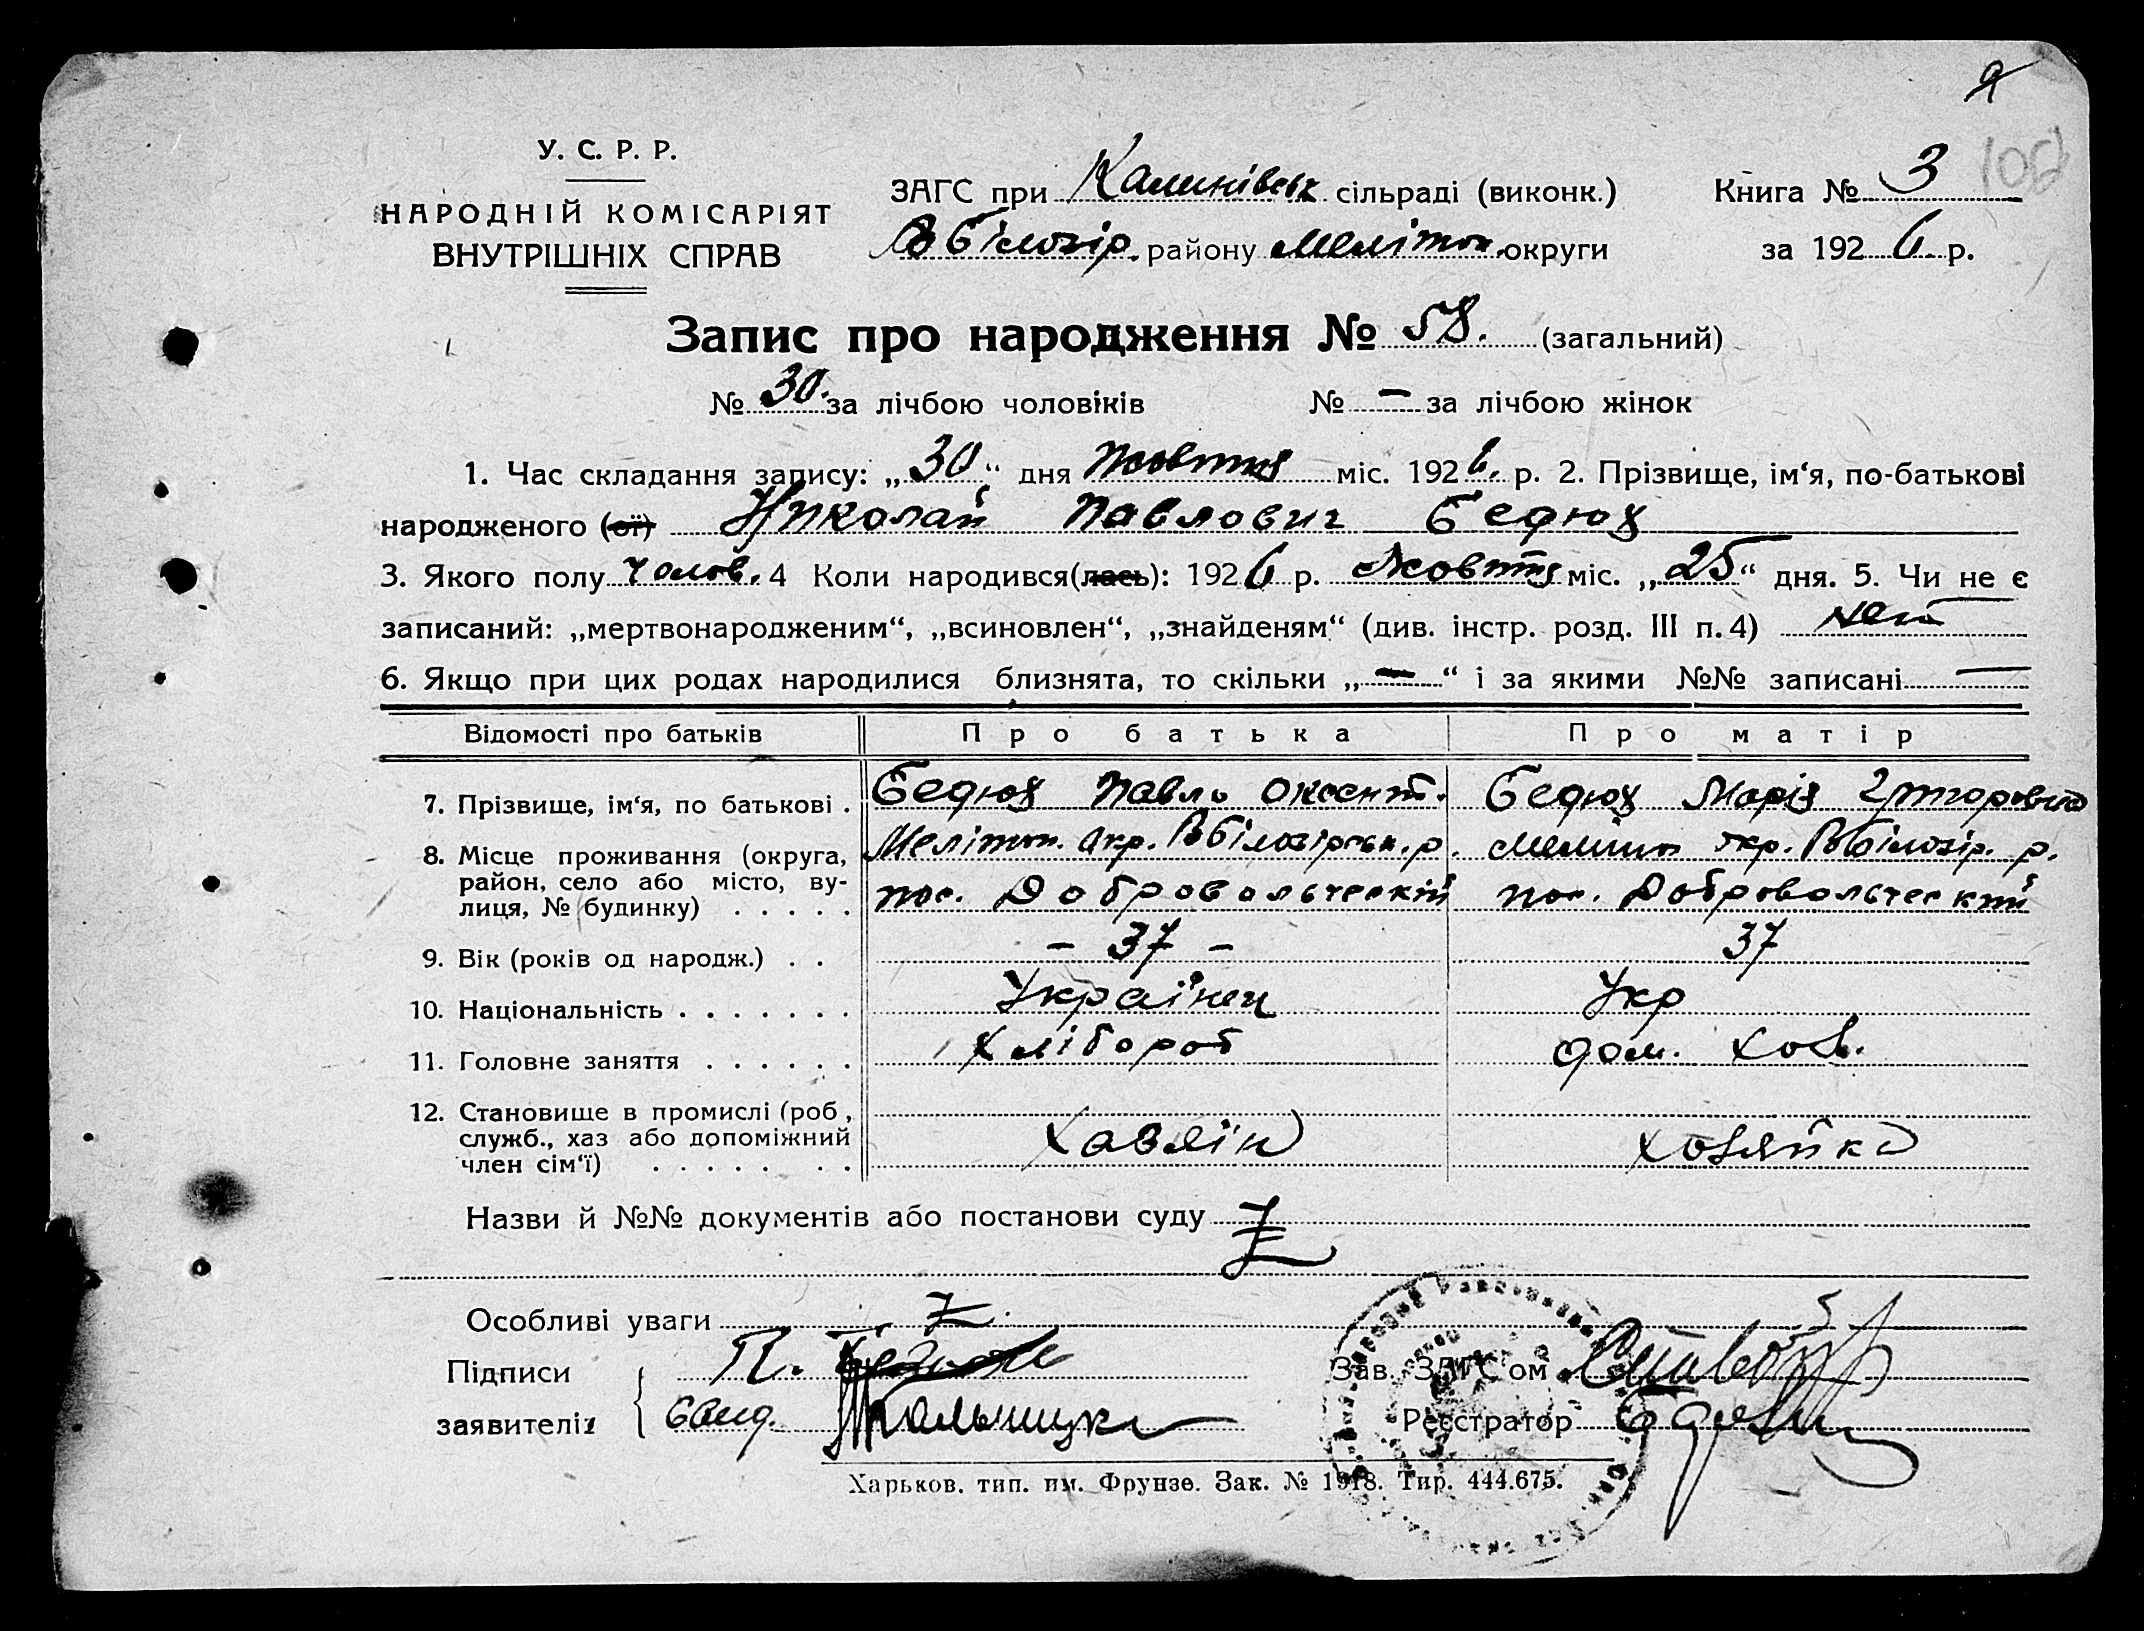 У. С. Р. Р.
НАРОДНІЙ КОМІСАРІЯТ
ВНУТРІШНІХ СПРАВ
ЗАГС при Калинівськ сільраді (виконк.)
Вбілозір. району Мелітоп. округи
Книга № 3
за 1926 р.
102
Запис про народження № 58. (загальний)
№ 30. за лічбою чоловіків № – за лічбою жінок
1. Час складання запису: „30“ дня жовтня міс. 1926. р. 2. Прізвище, ім‘я, по-батькові
народженого (ої) Николай Павлович Бедюх
3. Якого полу чолов. 4 Коли народився(лась): 1926 р. жовтня міс. „25“ дня. 5. Чи не є
записаний: „мертвонародженим“, „всиновлен“, „знайденям“ (див. інстр. розд. III п. 4)
6. Якщо при цих родах народилися близнята, то скільки „–“ і за якими №№ записані —
Відомості про батьків Про батька Про матір
7. Прізвище, ім‘я, по батькові . Бедюх Павло Оксент. Бедюх Марія Григоровна
8. Місце проживання (округа, Мелітоп. окр. Вбілозірськ. р. Мелитоп окр. Вбілозір. р.
район, село або місто, ву-
лиця, № будинку) . . . . . пос. Добровольческій пос. Добровольческий
9. Вік (років од народж.) . . – 37 – 37
10. Національність . . . . . . . Українец Укр
11. Головне заняття . . . . . . Хлібороб дом. хоз.
12. Становище в промислі (роб,
служб., хаз або допоміжний Хазяїн хозяйка
член сім‘ї) . . . . . . .
Назви й №№ документів або постанови суду
Особливі уваги
Підписи П.
заявителів
Зав. ЗАГС‘ом
Реєстратор
Харьков. тип. им. Фрунзе. Зак. № 1918. Тир. 444.675.